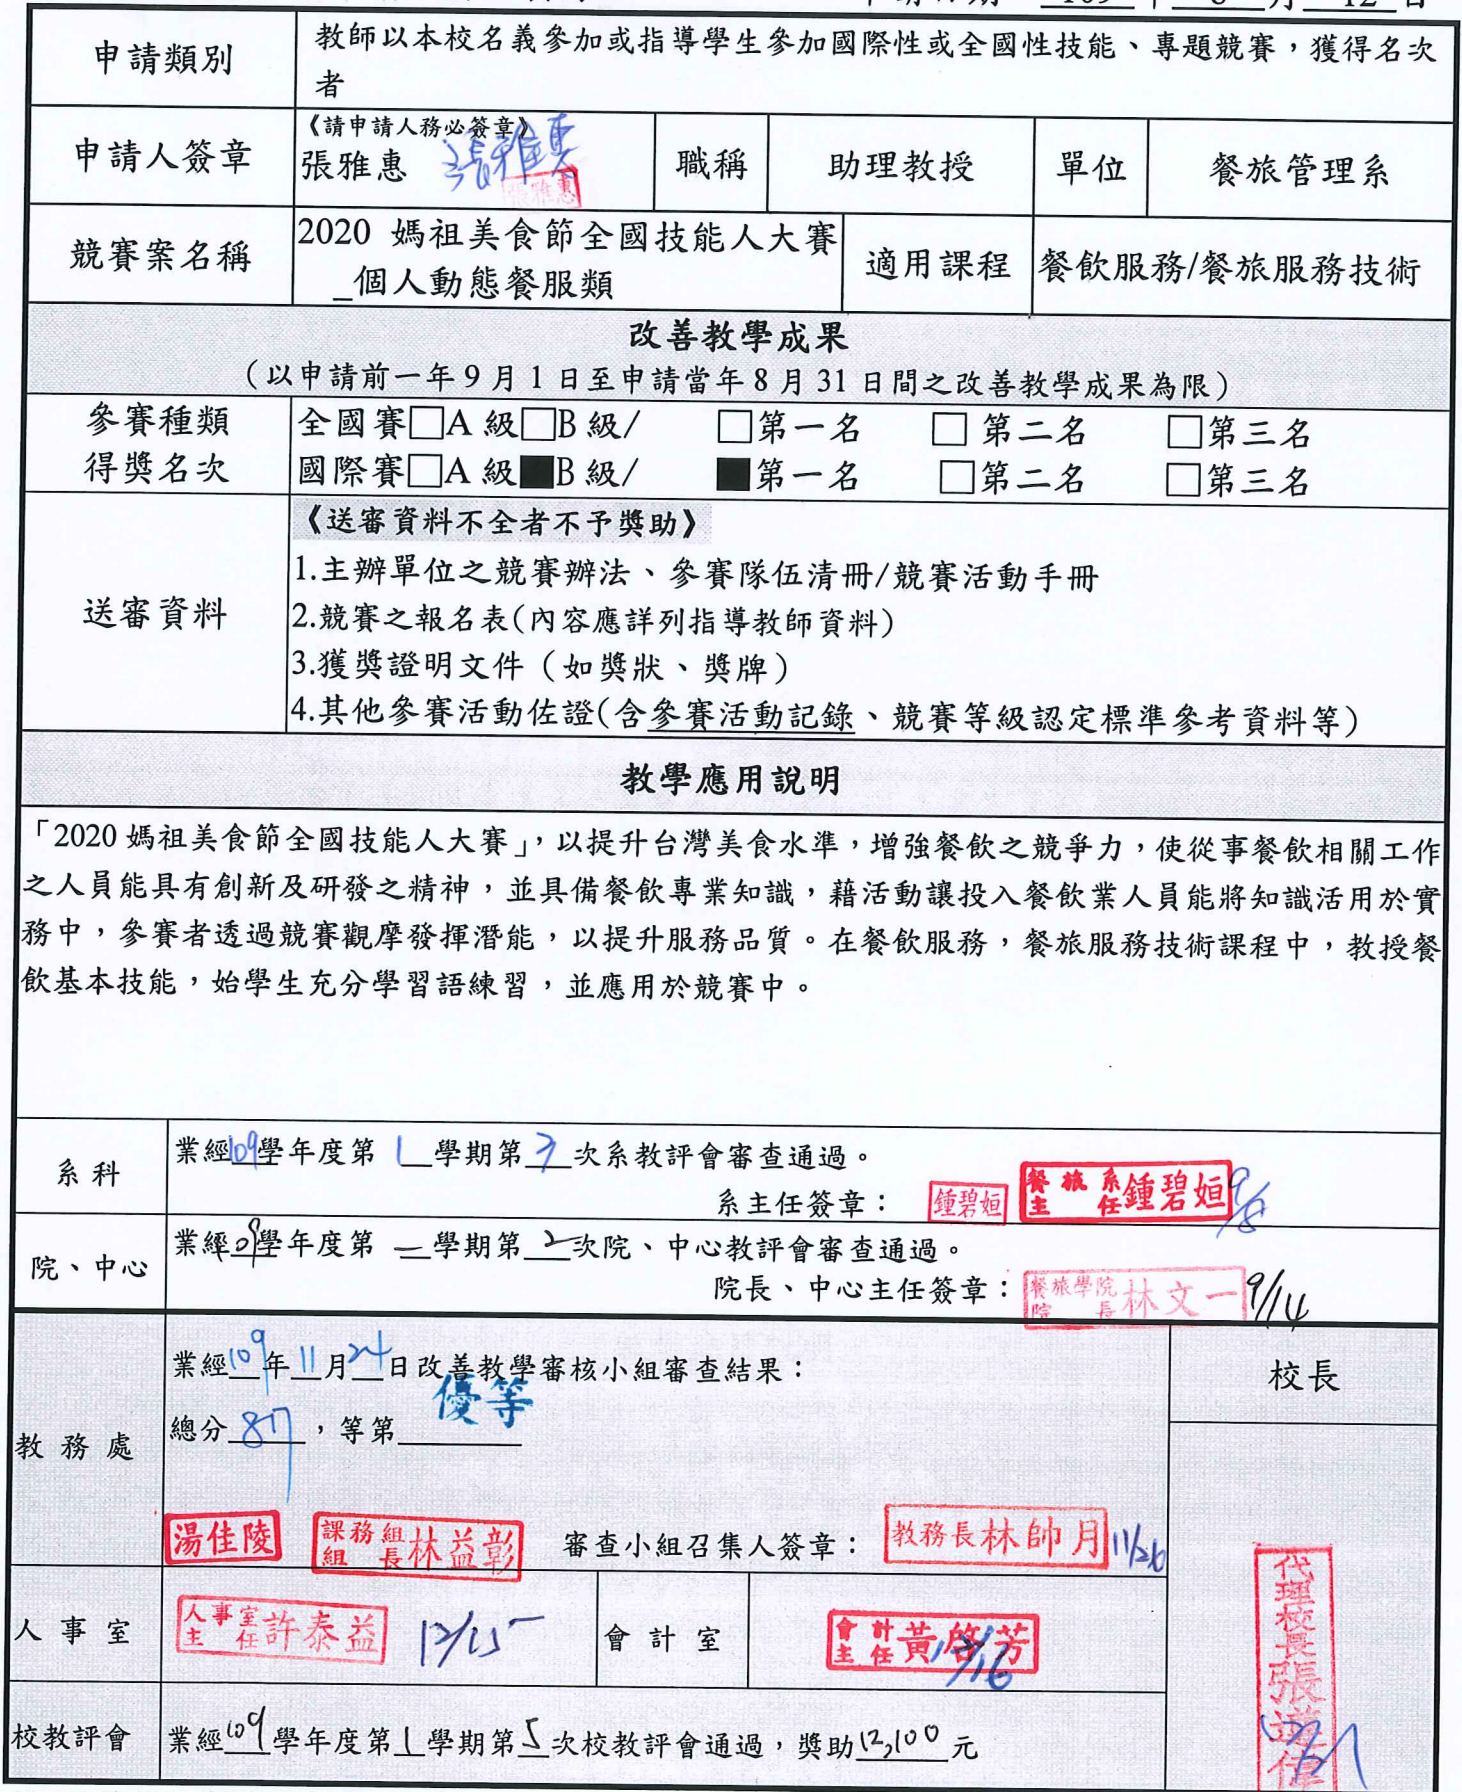 109 8 月 12 日
申請類別
教師以本校名義參加或指導學生參加國際性或全國性技能、專題競賽，獲得名次
者
申請人簽章
《請申請人務必簽章》
張雅惠 張雅惠
張雅惠
職稱
助理教授
單位
餐旅管理系
競賽案名稱
2020 媽祖美食節全國技能人大賽
_個人動態餐服類
適用課程
餐飲服務/餐旅服務技術
改善教學成果
（以申請前一年9月1日至申請當年8月31日間之改善教學成果為限）
參賽種類
得獎名次
全國賽□A 級□B 級/ □第一名 □ 第二名 □第三名
國際賽□A 級■B 級/ ■第一名 □第二名 □第三名
送審資料
《送審資料不全者不予獎助》
1.主辦單位之競賽辦法、參賽隊伍清冊/競賽活動手冊
2.競賽之報名表(內容應詳列指導教師資料)
3.獲獎證明文件（如獎狀、獎牌）
4.其他參賽活動佐證(含參賽活動記錄、競賽等級認定標準參考資料等)
教學應用說明
「2020 媽祖美食節全國技能人大賽」，以提升台灣美食水準，增強餐飲之競爭力，使從事餐飲相關工作
之人員能具有創新及研發之精神，並具備餐飲專業知識，藉活動讓投入餐飲業人員能將知識活用於實
務中，參賽者透過競賽觀摩發揮潛能，以提升服務品質。在餐飲服務，餐旅服務技術課程中，教授餐
飲基本技能，始學生充分學習語練習，並應用於競賽中。
系科
業經109學年度第 1 學期第 3 次系教評會審查通過。
系主任簽章： 鍾碧姮 餐旅系主任鍾碧姮 9/8
院、中心
業經109學年度第 一 學期第 2 次院、中心教評會審查通過。
院長、中心主任簽章： 餐旅學院院長林文一 9/14
教務處
業經109年11月24日改善教學審核小組審查結果：
總分 87 ，等第 優等
湯佳陵 課務組組長林益彰 審查小組召集人簽章： 教務長林帥月 11/26
校長
代理校長張遊偉
人事室
人事室主任許泰益 12/15
會計室
會計主任黃啓芳 12/16
校教評會
業經109學年度第1學期第5次校教評會通過，獎助12,100元